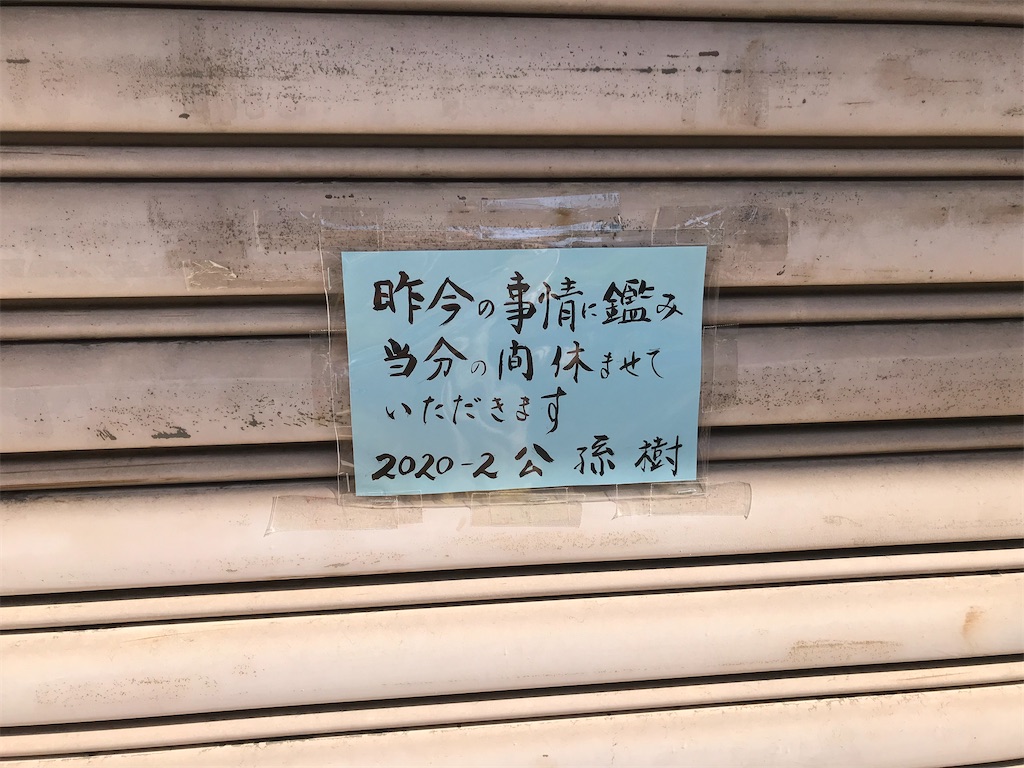 昨今の事情に鑑み
当分の間休ませて
いただきます
2020-2 公孫樹